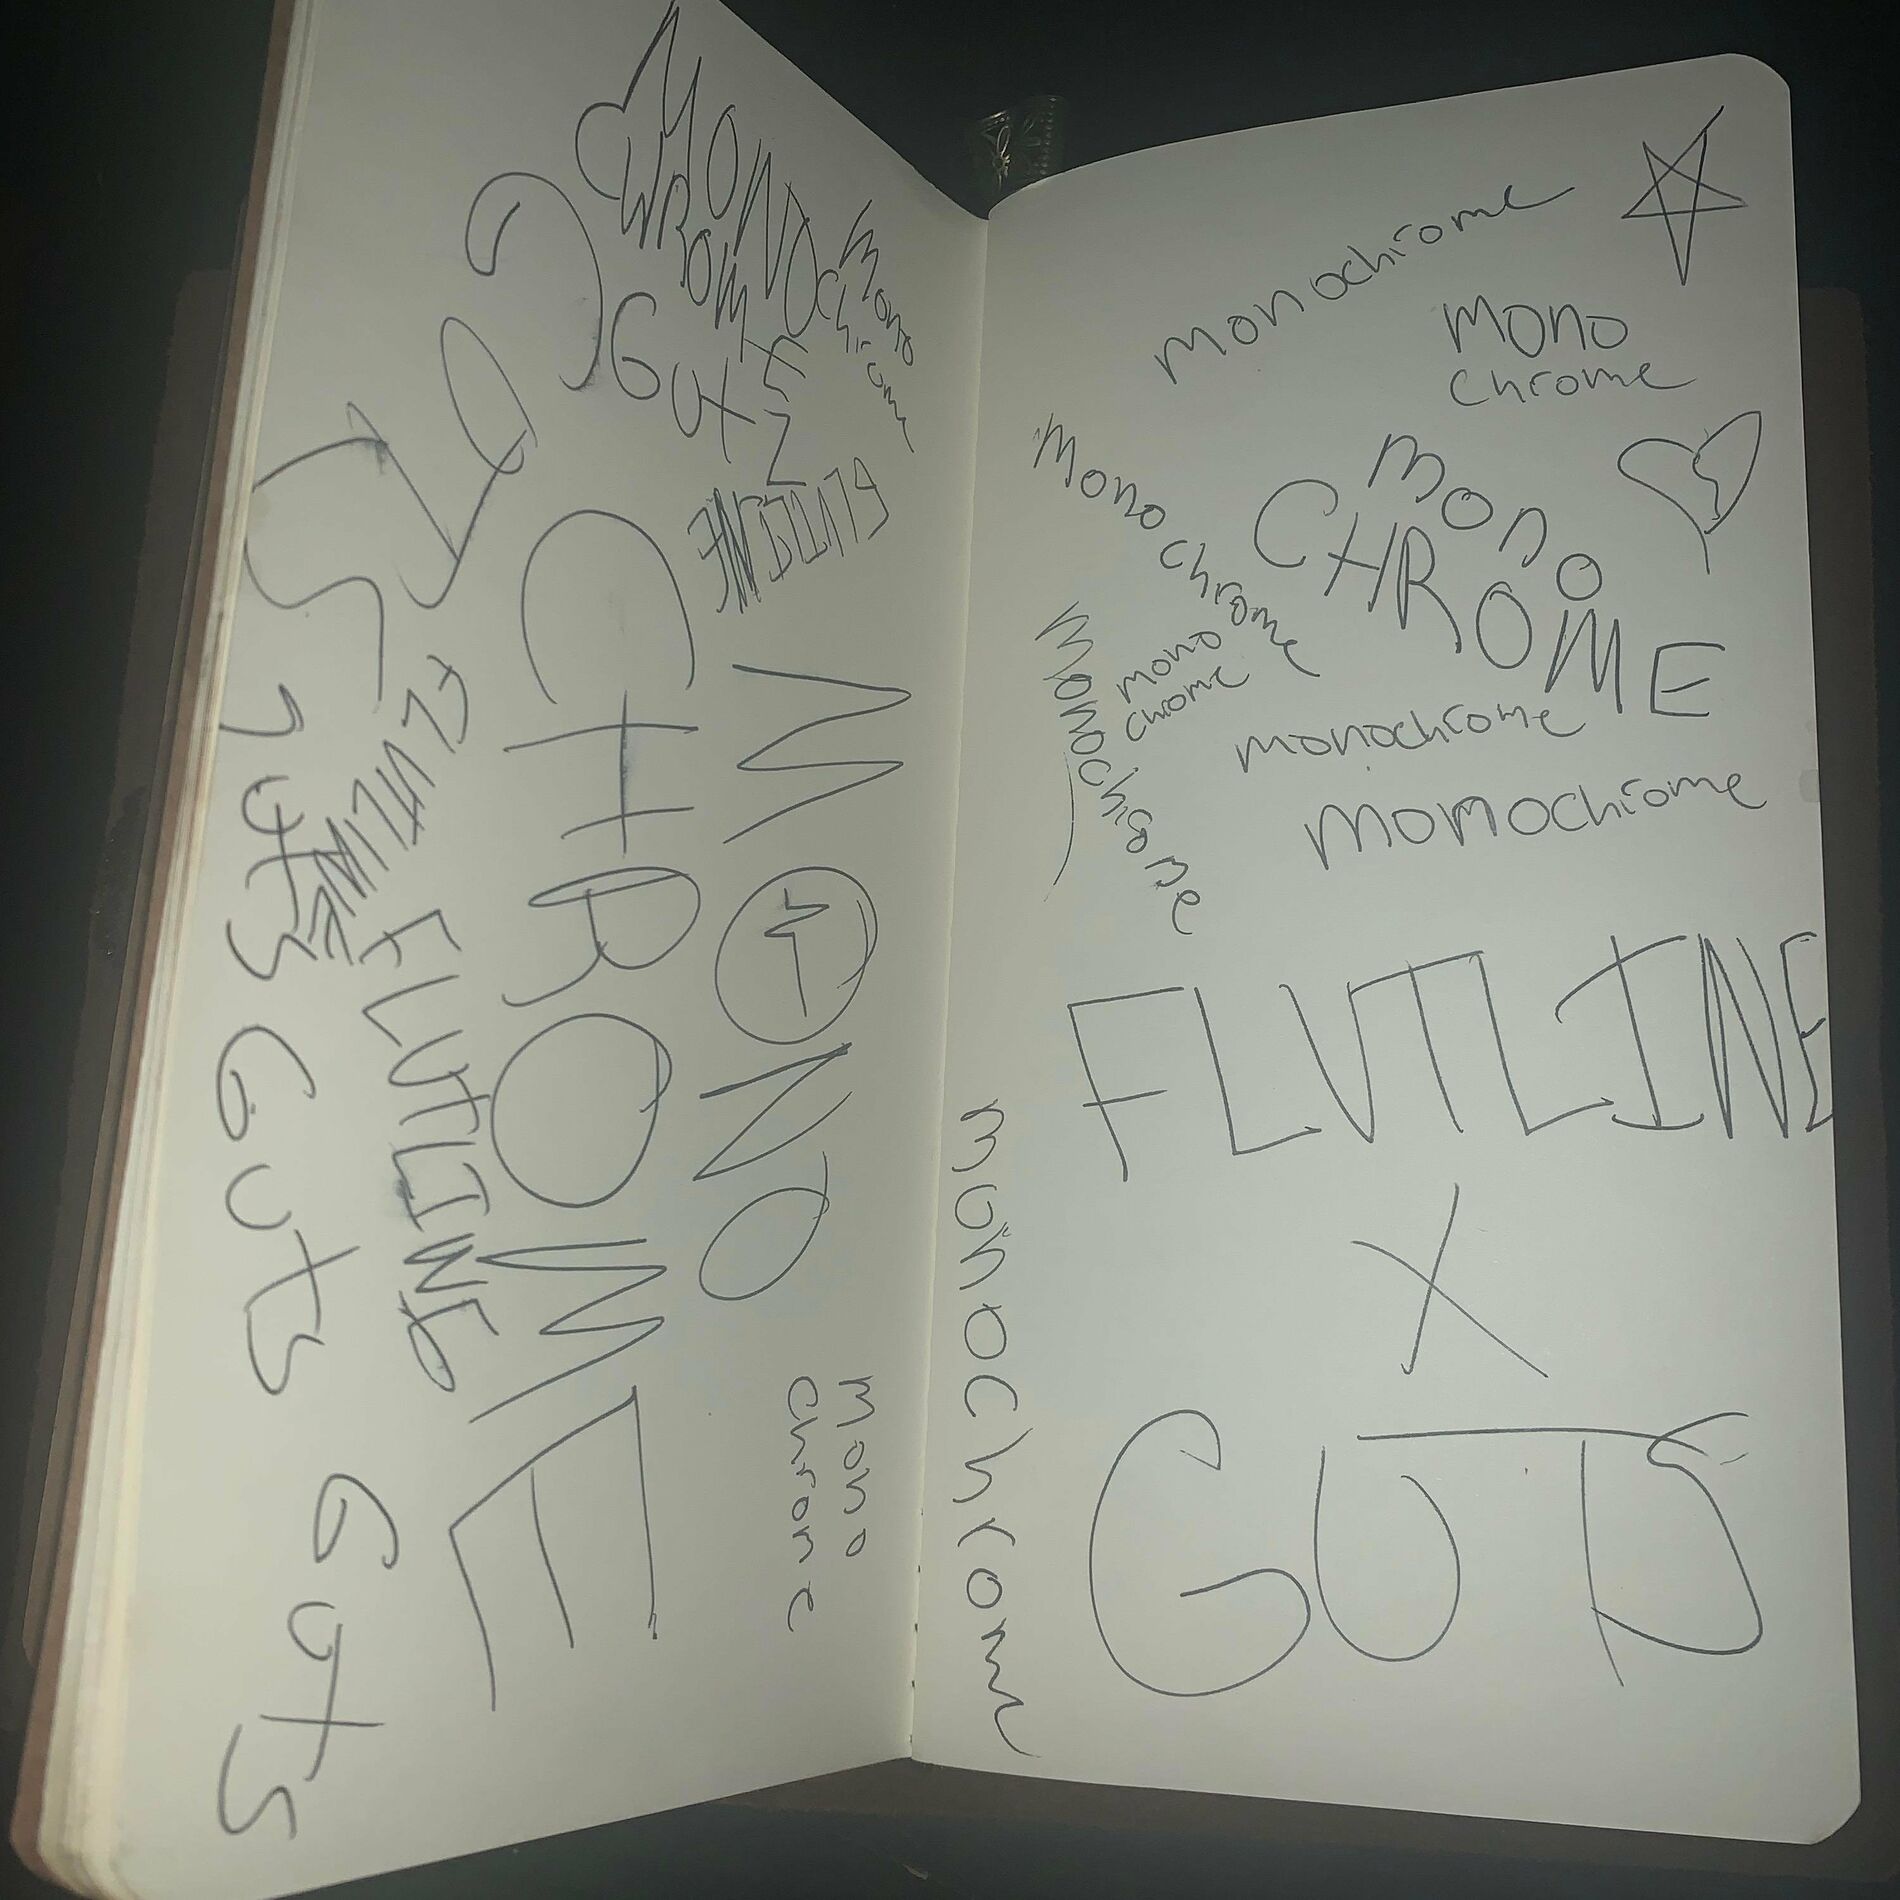 MONO
CHROME
mono
chrome
GUTZ
FLUTLINE
GUTS
FLUTLINE
MONO
CHROME
FLUTLINE
GUTS
GUTS
GUTS
mono
chrome
monochrome
mono
chrome
mono
CHROME
mono chrome
mono
chrome
monochrome
monochrome
momochrome
FLUTLINE
X
GUTS
monochrom